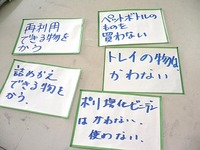 再利用
できる物を
かう
ペットボトルの
ものを
買わない
詰めかえ
できる物を
かう。
トレイの物は
かわない
ポリ塩化ビニデン
は かわない、
使わない.